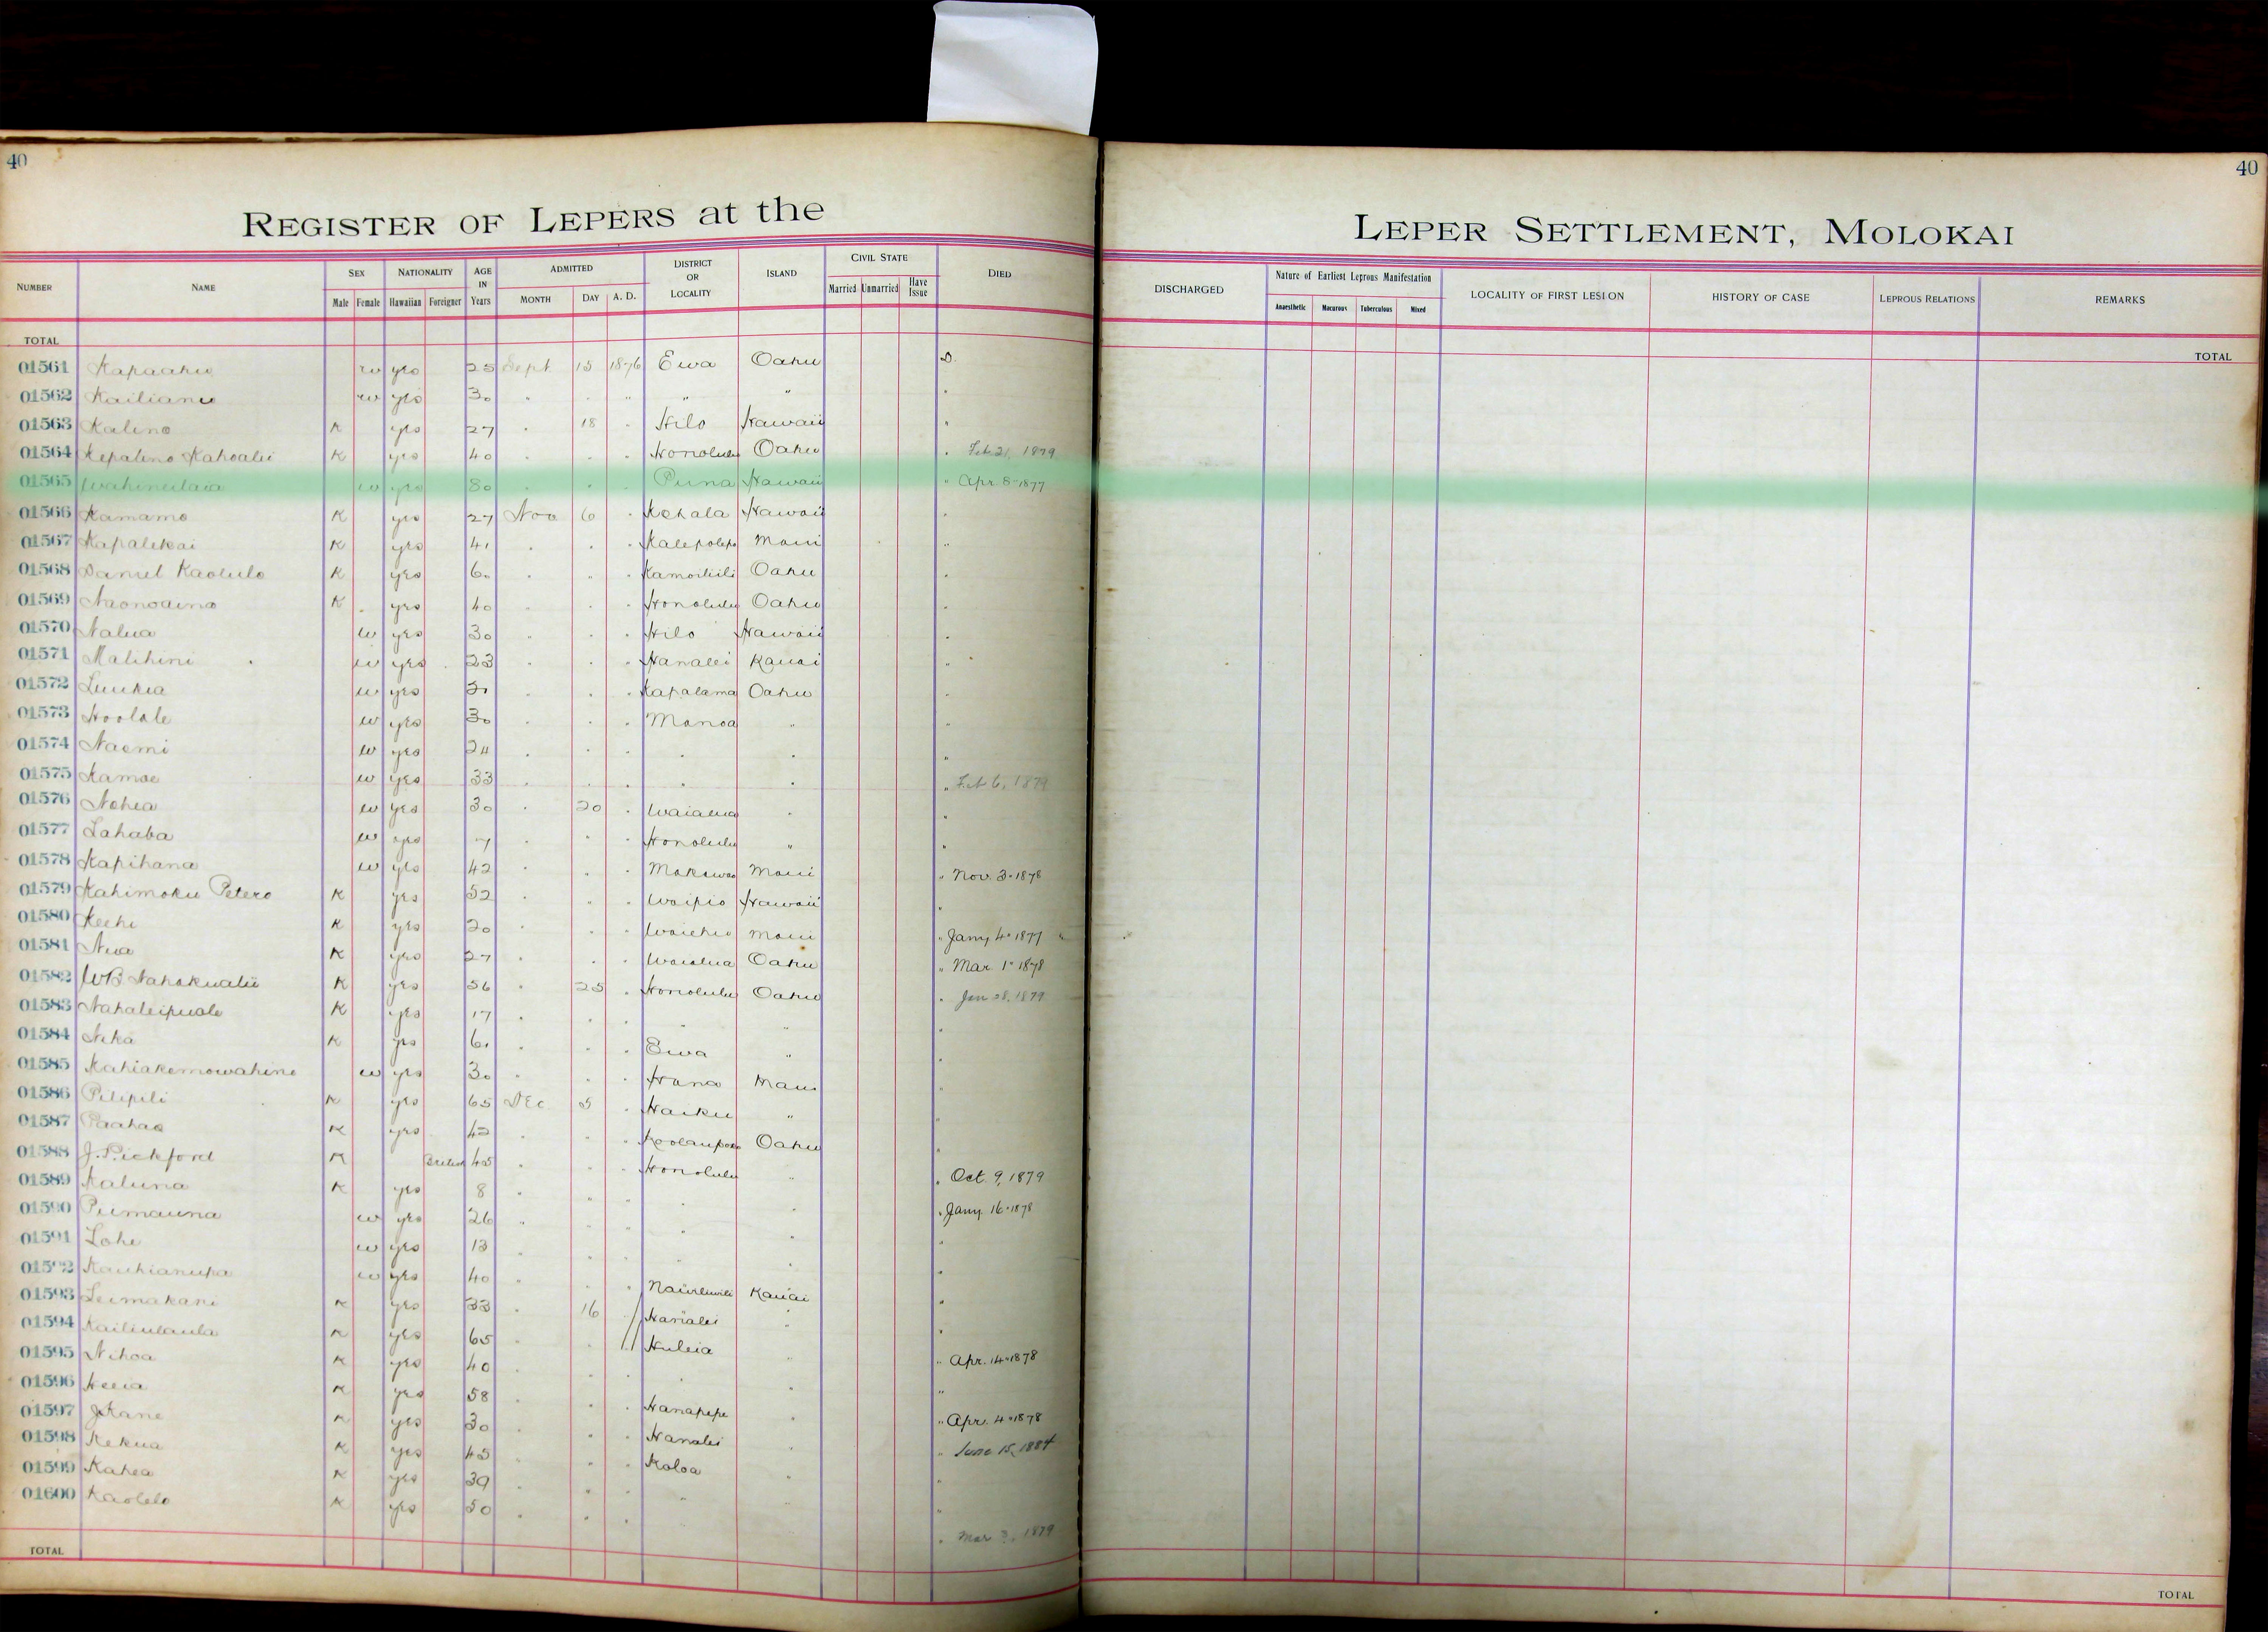 40
40
REGISTER OF LEPERS at the
LEPER SETTLEMENT, MOLOKAI
NUMBER NAME SEX Male Female NATIONALITY Hawaiian Foreigner AGE IN Years ADMITTED MONTH DAY A. D. DISTRICT OR LOCALITY ISLAND CIVIL STATE Married Unmarried Have Issue DIED
DISCHARGED Nature of Earliest Leprous Manifestation Anaesthetic Macurous Tuberculous Mixed LOCALITY OF FIRST LESION HISTORY OF CASE LEPROUS RELATIONS REMARKS
TOTAL
TOTAL
01561 Kapaahu w yes 25 Sept 15 1876 Ewa Oahu D.
01562 Kailianu w yes 30 " " " " " "
01563 Kalino K yes 27 " 18 " Hilo Hawaii "
01564 Kepalino Kahoalii K yes 40 " " " Honolulu Oahu " Feb 21, 1879
01565 w yes 80 " " " Puna Hawaii " Apr. 8-1877
01566 Kamamo K yes 27 Nov 6 " Kohala Hawaii "
01567 Kapalekai K yes 41 " " " Kalepolepo Maui "
01568 Daniel Kaolulo K yes 60 " " " Kamoiliili Oahu "
01569 Naonoaina K yes 40 " " " Honolulu Oahu "
01570 Nalua w yes 30 " " " Hilo Hawaii "
01571 Malihini w yes 23 " " " Hanalei Kauai "
01572 Luukia w yes " " " Kapalama Oahu "
01573 Hoolale w yes 30 " " " Manoa " "
01574 Naemi w yes 24 " " " " " "
01575 Kamae w yes 33 " " " " " " Feb 6, 1879
01576 Nohea w yes 30 " 20 " Waialua " "
01577 Lahaba w yes 7 " " " Honolulu " "
01578 Kapihana w yes 42 " " " Makawao Maui " Nov. 3-1878
01579 Kahimoku Petero K yes 52 " " " Waipio Hawaii "
01580 Keehi K yes 20 " " " Waiehu Maui " Jany 4-1877 "
01581 Niua K yes 27 " " " Waialua Oahu " Mar. 1-1878
01582 WB Nahokualii K yes 56 " 25 " Honolulu Oahu " Jan 28, 1879
01583 Nahaleipuole K yes 17 " " " " " "
01584 Nika K yes 61 " " " Ewa " "
01585 Kahiakemowahine w yes 30 " " " Hana Maui "
01586 Pilipili K yes 65 Dec 5 " Haiku " "
01587 Paahao K yes 42 " " " Koolaupoko Oahu "
01588 J. Pickford K British 45 " " " Honolulu " " Oct. 9, 1879
01589 Kaluna K yes 8 " " " " " " Jany 16-1878
01590 Puimauna w yes 26 " " " " " "
01591 Lohe w yes 13 " " " " " "
01592 Kauhianupa w yes 40 " " " Nawiliwili Kauai "
01593 Leimakani K yes 33 " 16 " Hanalei " "
01594 Kailiulaula K yes 65 " " " Huleia " " Apr. 14-1878
01595 Nihoa K yes 40 " " " " " "
01596 Heeia K yes 58 " " " Hanapepe " " Apr. 4-1878
01597 J Kane K yes 30 " " " Hanalei " " June 15, 1884
01598 Kekua K yes 45 " " " Koloa " "
01599 Kahea K yes 39 " " " " " "
01600 Kaolelo K yes 50 " " " " Mar 3, 1879
TOTAL
TOTAL